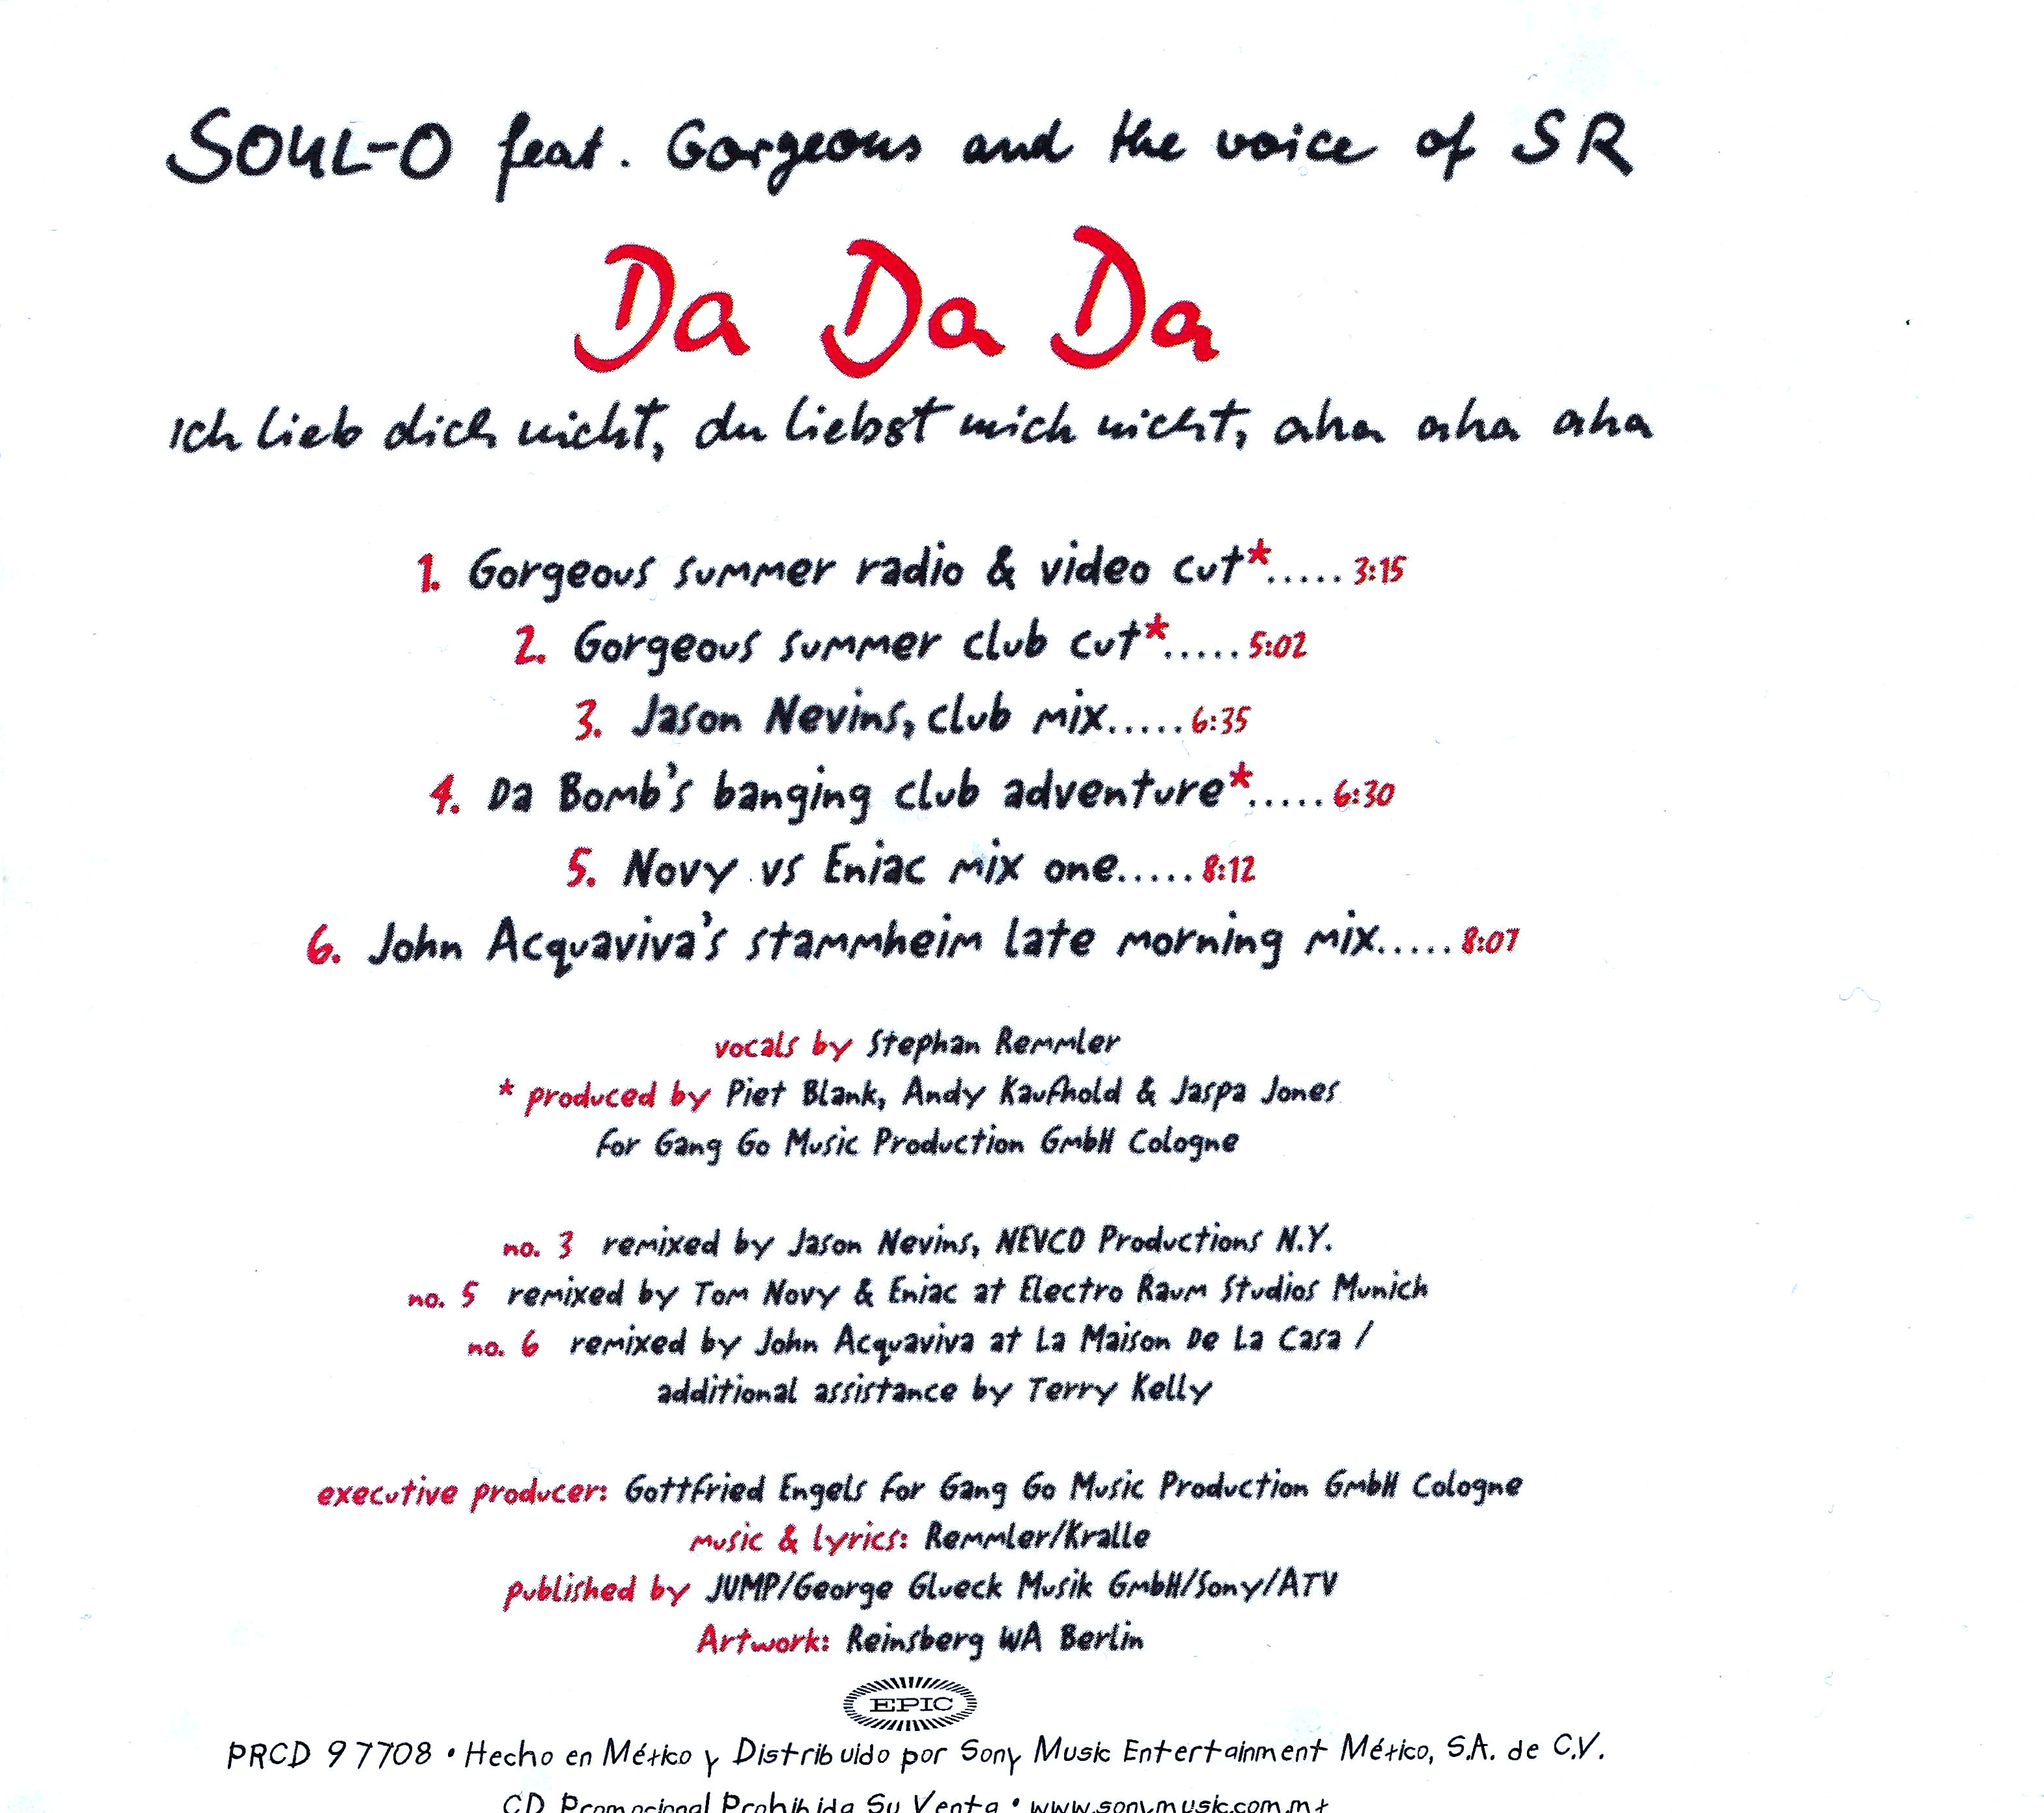 SOUL-O feat. Gorgeous and the voice of SR
Da Da Da
Ich lieb dich nicht, du liebst mich nicht, aha aha aha
1. Gorgeous summer radio & video cut*.....3:15
2. Gorgeous summer club cut*.....5:02
3. Jason Nevins, club mix.....6:35
4. Da Bomb's banging club adventure*.....6:30
5. Novy vs Eniac mix one.....8:12
6. John Acquaviva's stammheim late morning mix.....8:07
vocals by Stephan Remmler
* produced by Piet Blank, Andy Kaufhold & Jaspa Jones
for Gang Go Music Production GmbH Cologne
no. 3 remixed by Jason Nevins, NEVCO Productions N.Y.
no. 5 remixed by Tom Novy & Eniac at Electro Raum Studios Munich
no. 6 remixed by John Acquaviva at La Maison De La Casa /
additional assistance by Terry Kelly
executive producer: Gottfried Engels for Gang Go Music Production GmbH Cologne
music & lyrics: Remmler/Kralle
published by JUMP/George Glueck Musik GmbH/Sony/ATV
Artwork: Reinsberg WA Berlin
EPIC
PRCD 97708 • Hecho en México y Distribuido por Sony Music Entertainment México, S.A. de C.V.
CD Promocional Prohibida Su Venta • www.sonymusic.com.mx